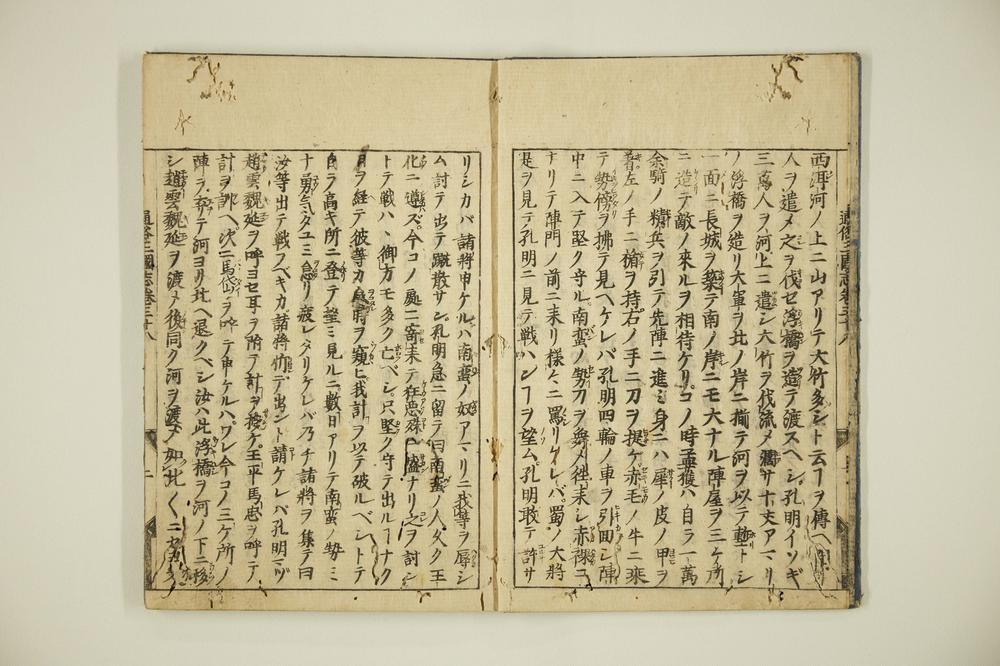 西洱河ノ上ニ山アリテ大竹多シト云フヿヲ傳ヘ聞
人ヲ遣メ之ヲ伐セ浮橋ヲ造テ渡スヘシ孔明イソギ
三萬人ヲ河上ニ遣シ大竹ヲ伐流メ濶サ十丈アマリ
ノ浮橋ヲ造リ大軍ヲ北ノ岸ニ揃テ河ヲ以テ塹トシ
一面ニ長城ヲ築テ南ノ岸ニモ大ナル陣屋ヲ三ヶ所
ニ造テ敵ノ來ルヲ相待ケリコノ時孟獲ハ自ラ一萬
余騎ノ精兵ヲ引テ先陣ニ進ミ身ニハ犀ノ皮ノ甲ヲ
着左ノ手ニ楯ヲ持右ノ手ニ刀ヲ提ケ赤毛ノ牛ニ乘
テ勢傍ヲ拂テ見ヘケレバ孔明四輪ノ車ヲ引回シ陣
中ニ入テ堅ク守ル南蛮ノ勢刀ヲ舞メ往来シ赤裸ニ
ナリテ陣門ノ前ニ来リ様々ニ罵リケレバ蜀ノ大將
是ヲ見テ孔明ニ見テ戦ハンヿヲ望ム孔明敢テ許サ
リシカバ諸將申ケルハ南蛮ノ奴アマリニ我等ヲ辱シ
ム討テ出テ蹴散サン孔明急ニ留テ曰南蛮ノ人久ク王
化ニ遵ズ今コノ處ニ寄来テ狂惡殊ニ盛ナリ之ヲ討シ
トテ戦ハヽ御方モ多ク亡ベシ只堅ク守テ出ルヿナク
月ヲ経テ彼等カ怠時ヲ窺ヒ我計ヲ以テ破ルベシトテ
自ラ高キ所ニ登テ望ミ見ルニ數日アリテ南蛮ノ勢ミ
ナ勇気タユミ怠リ疲レタリケレバ乃チ諸將ヲ集テ曰
汝等出テ戦フベキカ諸將忻デ出ント請ケレバ孔明マヅ
趙雲魏延ヲ呼ヨセ耳ヲ附テ計ヲ授ケ王平馬忠ヲ呼テ
計ヲ訓ヘ次ニ馬岱ヲ呼テ申ケルハワレ今コノ三ケ所ノ
陣ヲ弃テ河ヨリ北ヘ退クベシ汝ハ此浮橋ヲ河ノ下ニ移
シ趙雲魏延ヲ渡メ後同ク河ヲ渡メ如此〱ニセヨ
通俗三國志卷三十八